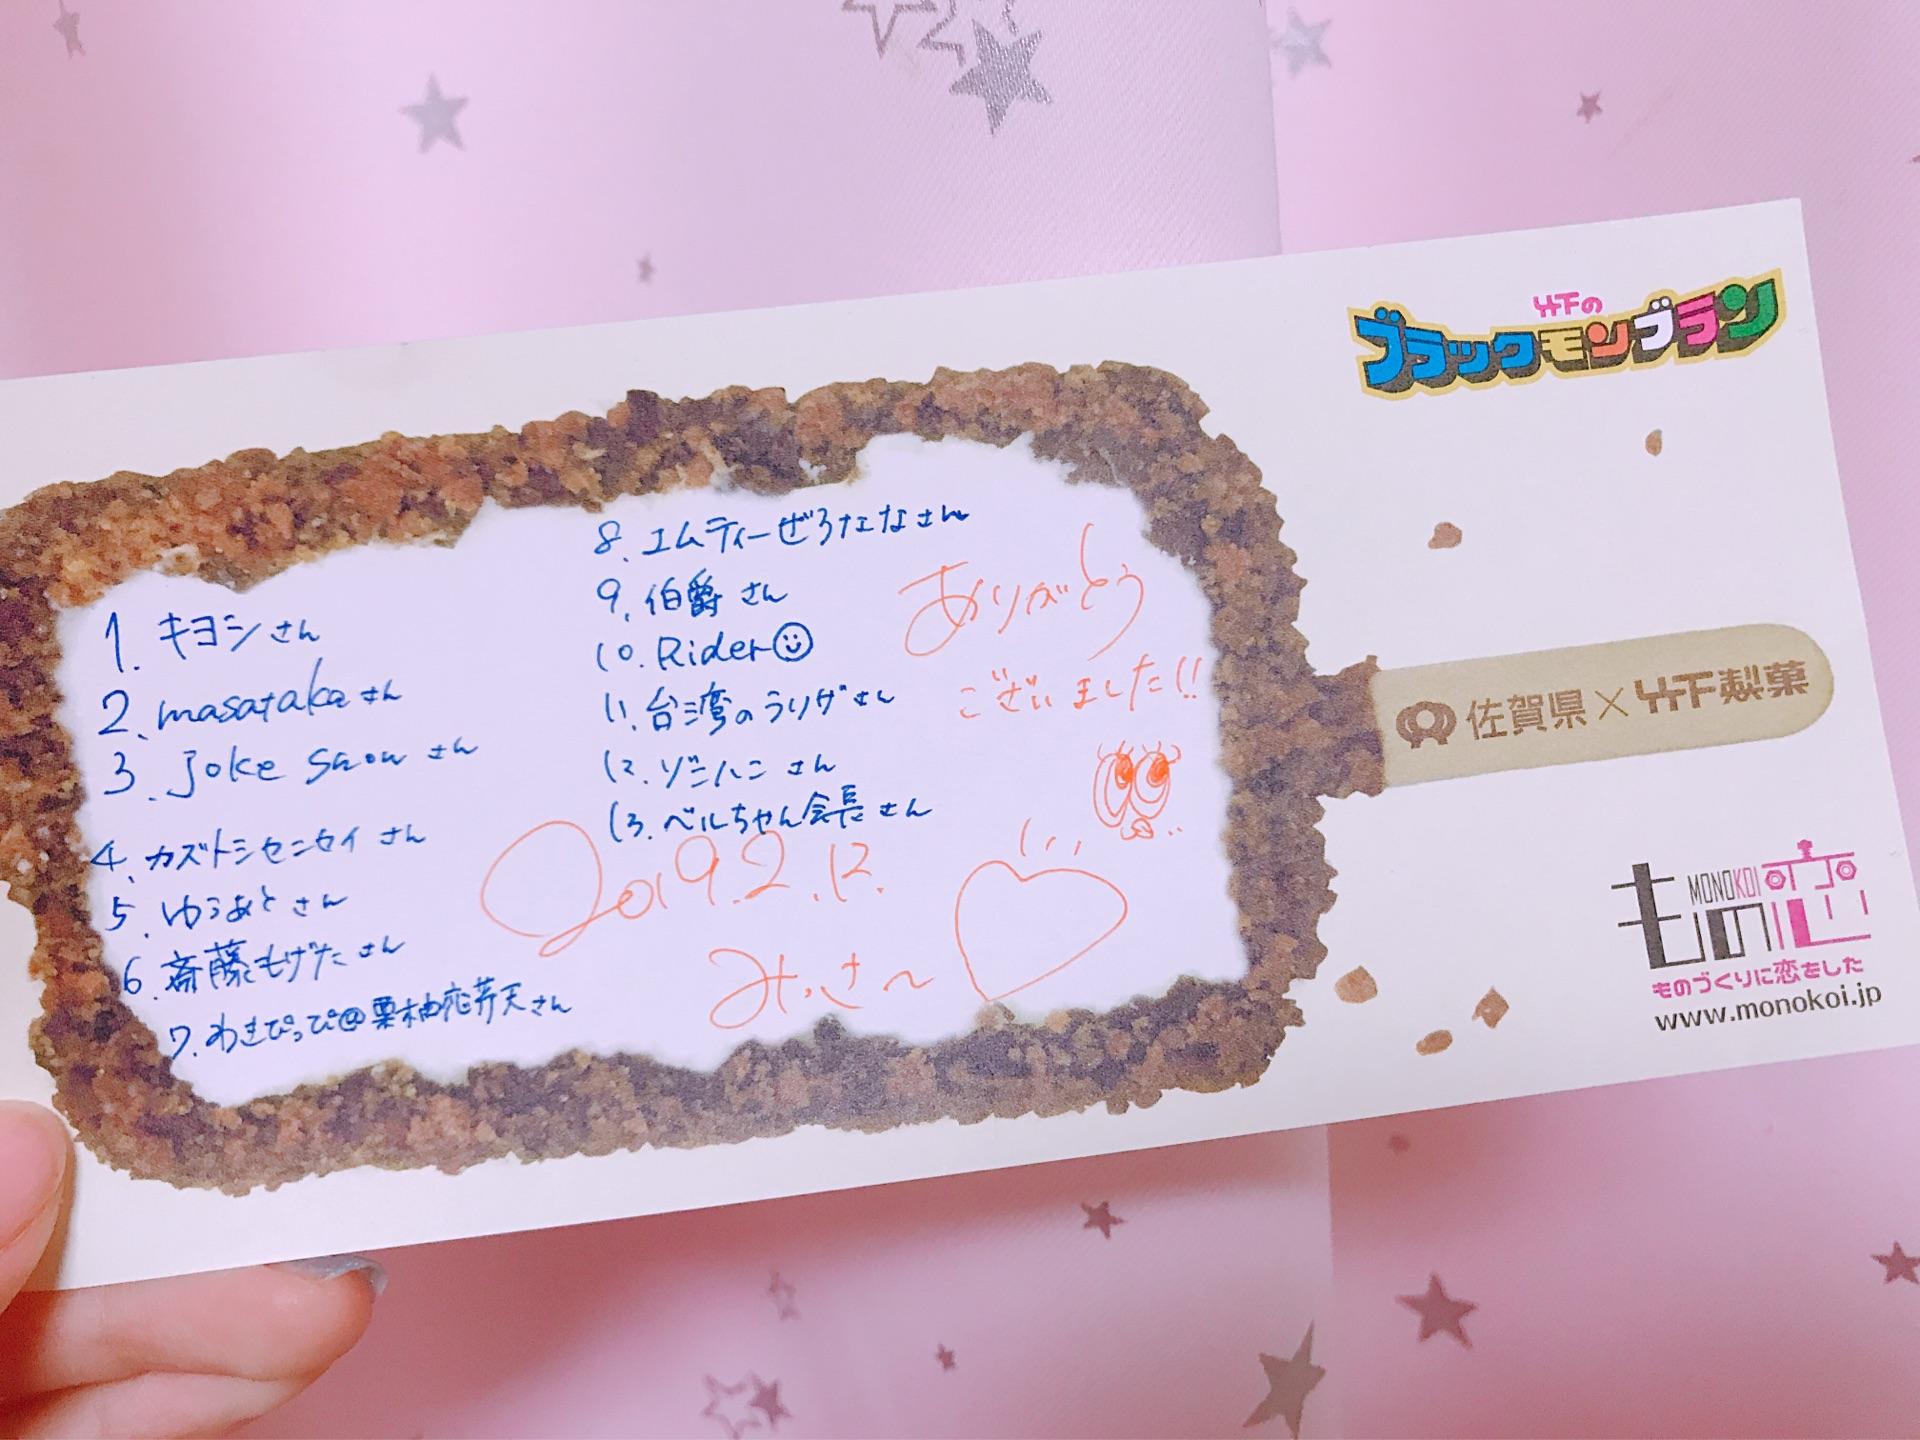 竹下の
ブラックモンブラン
1. キヨシさん
2. masatakaさん
3. Joke Snowさん
4. カズトシセンセイさん
5. ゆうあとさん
6. 斎藤もげたさん
7. わきぴっぴ@栗柚応芹天さん
8. エムティーぜろななさん
9. 伯爵さん
10. Rider
11. 台湾のうりげさん
12. ゾニハニさん
13. ベルちゃん会長さん
ありがとう
ございました!!
2019.2.12.
みっさ〜
佐賀県×竹下製菓
MONOKOI
もの恋
ものづくりに恋をした
www.monokoi.jp